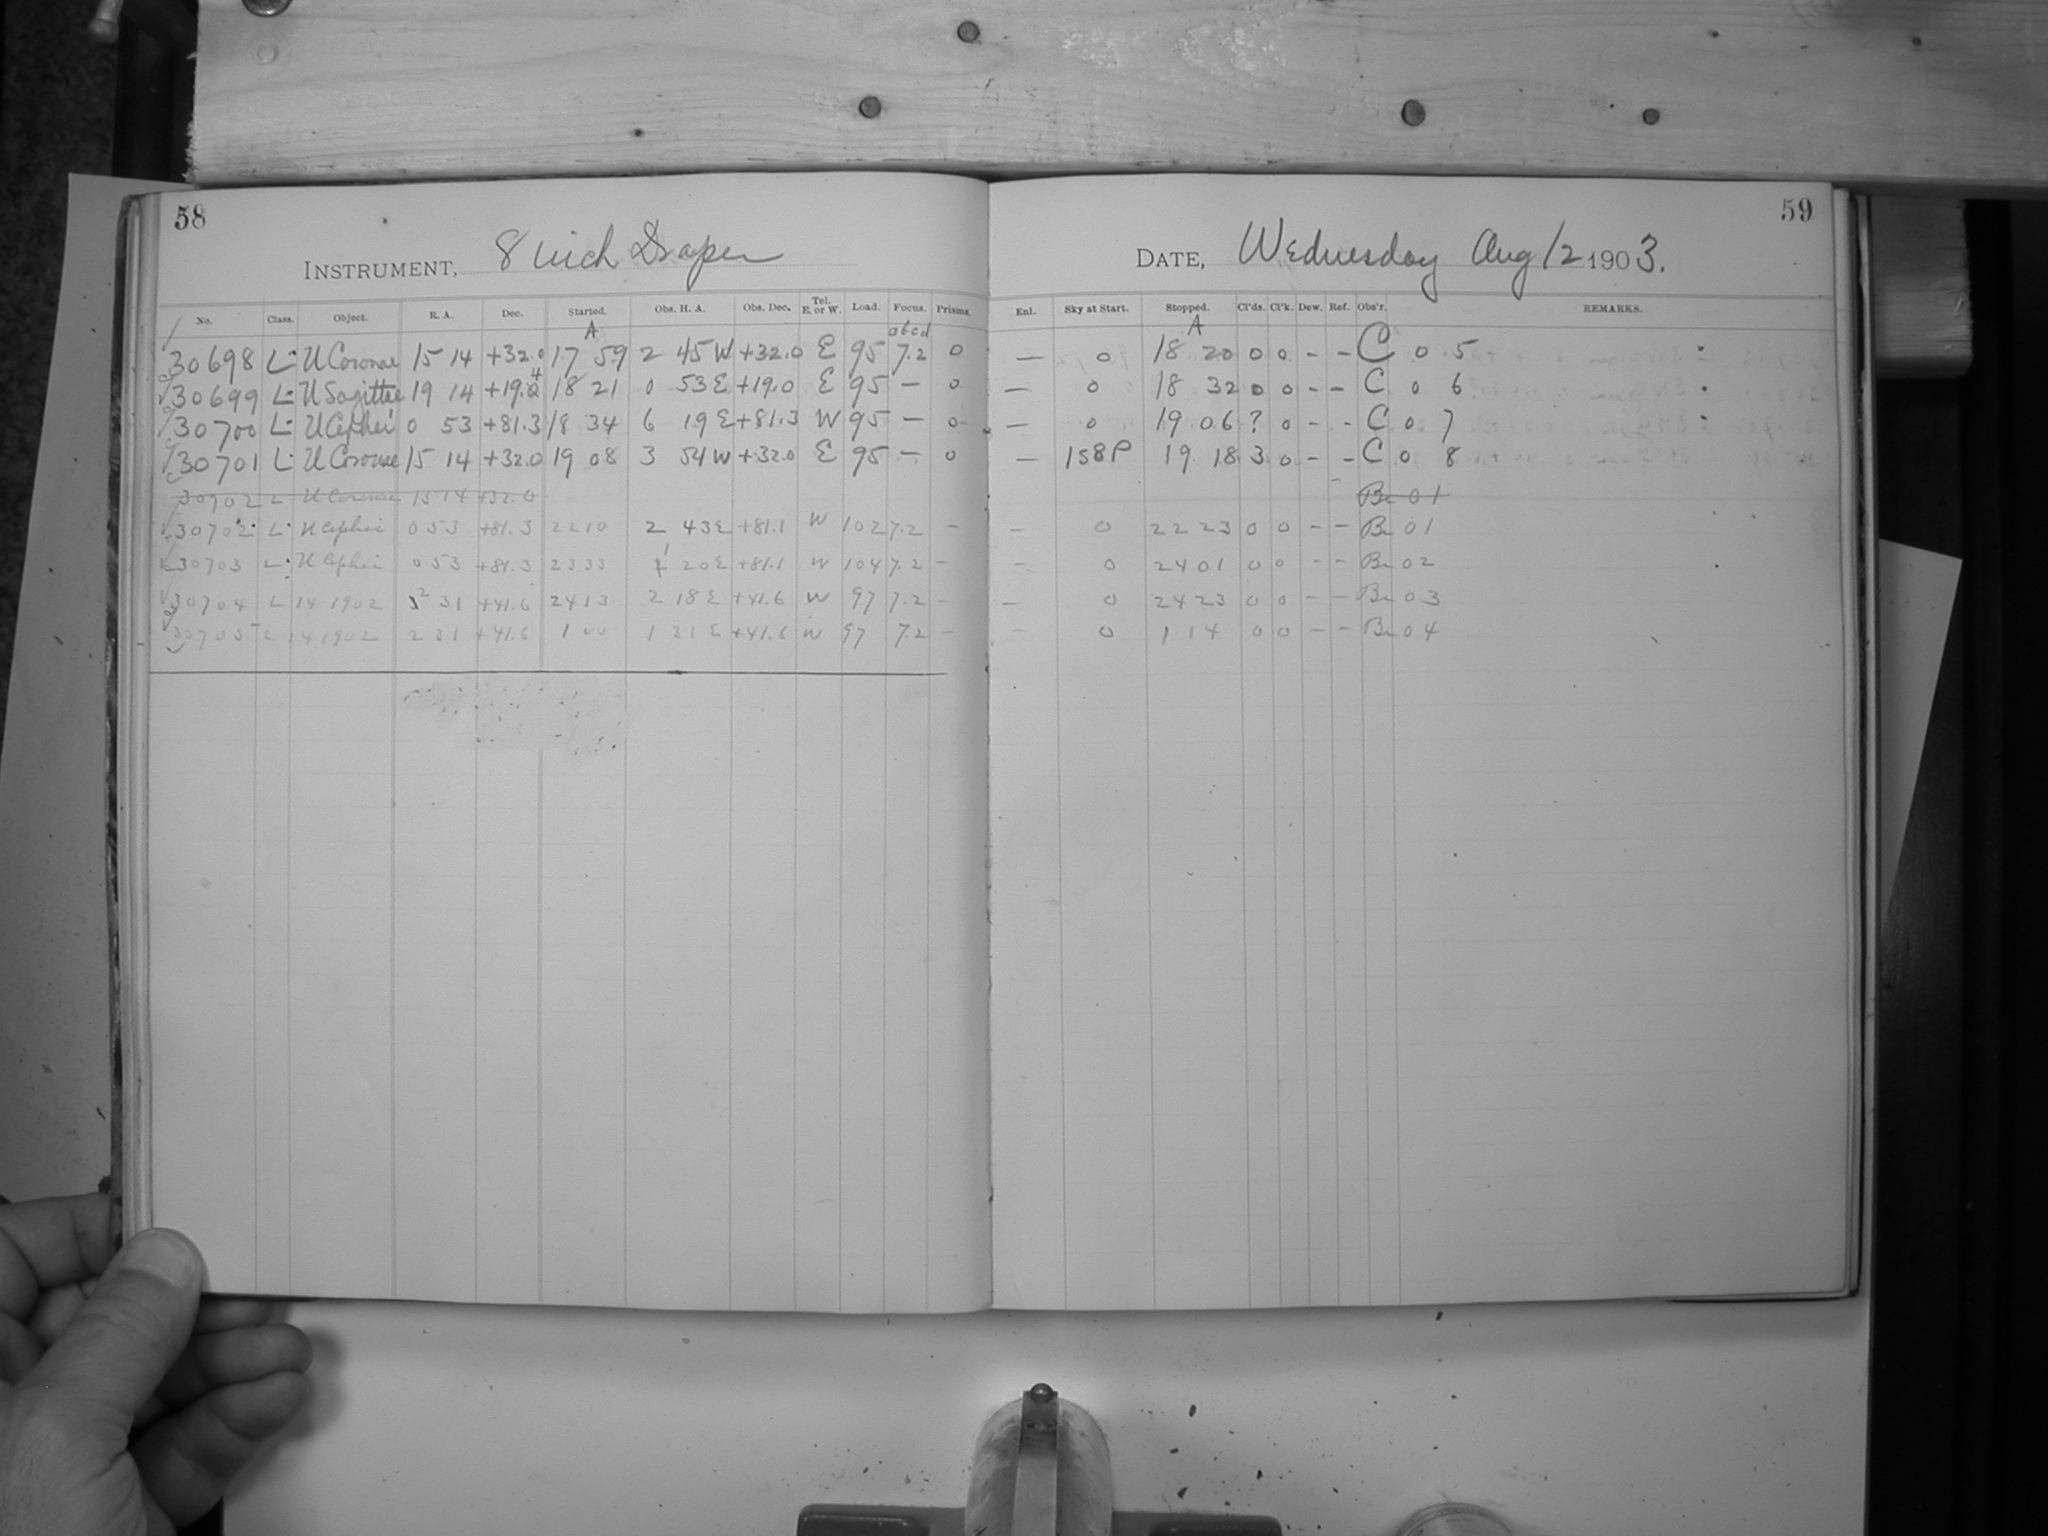 58
INSTRUMENT, 8 inch Draper
No. Class. Object. R. A. Dec. Started. Obs. H. A. Obs. Dec. Tel. E. or W. Load. Focus. Prisms.
A abcd
30698 L U Coronae 15 14 +32.0 17 59 2 45 W +32.0 E 95 7.2 0
30699 L U Sagittae 19 14 +19.4 18 21 0 53 E +19.0 E 95 — 0
30700 L U Cephei 0 53 +81.3 18 34 6 19 E +81.3 W 95 — 0
30701 L U Coronae 15 14 +32.0 19 08 3 54 W +32.0 E 95 — 0
30702 L U Coronae 15 14 +32.0
30702 L U Cephei 0 53 +81.3 22 10 2 43 E +81.1 W 102 7.2 —
30703 L U Cephei 0 53 +81.3 23 33 1 20 E +81.1 W 104 7.2 —
30704 L 14.1902 2 31 +41.6 24 13 2 18 E +41.6 W 97 7.2 —
30705 L 14 1902 2 31 +41.6 1 00 1 31 E +41.6 W 97 7.2 —
59
DATE, Wednesday Aug 12 1903.
Enl. Sky at Start. Stopped. Cl'ds. Cl'k. Dew. Ref. Obs'r. REMARKS.
A
— 0 18 20 0 0 – – C 0 5
— 0 18 32 0 0 – – C 0 6
— 0 19 06 ? 0 – – C 0 7
— 158P 19 18 3 0 – – C 0 8
Br 01
— 0 22 23 0 0 – – Br 01
— 0 24 01 0 0 – – Br 02
— 0 24 23 0 0 – – Br 03
— 0 1 14 0 0 – – Br 04